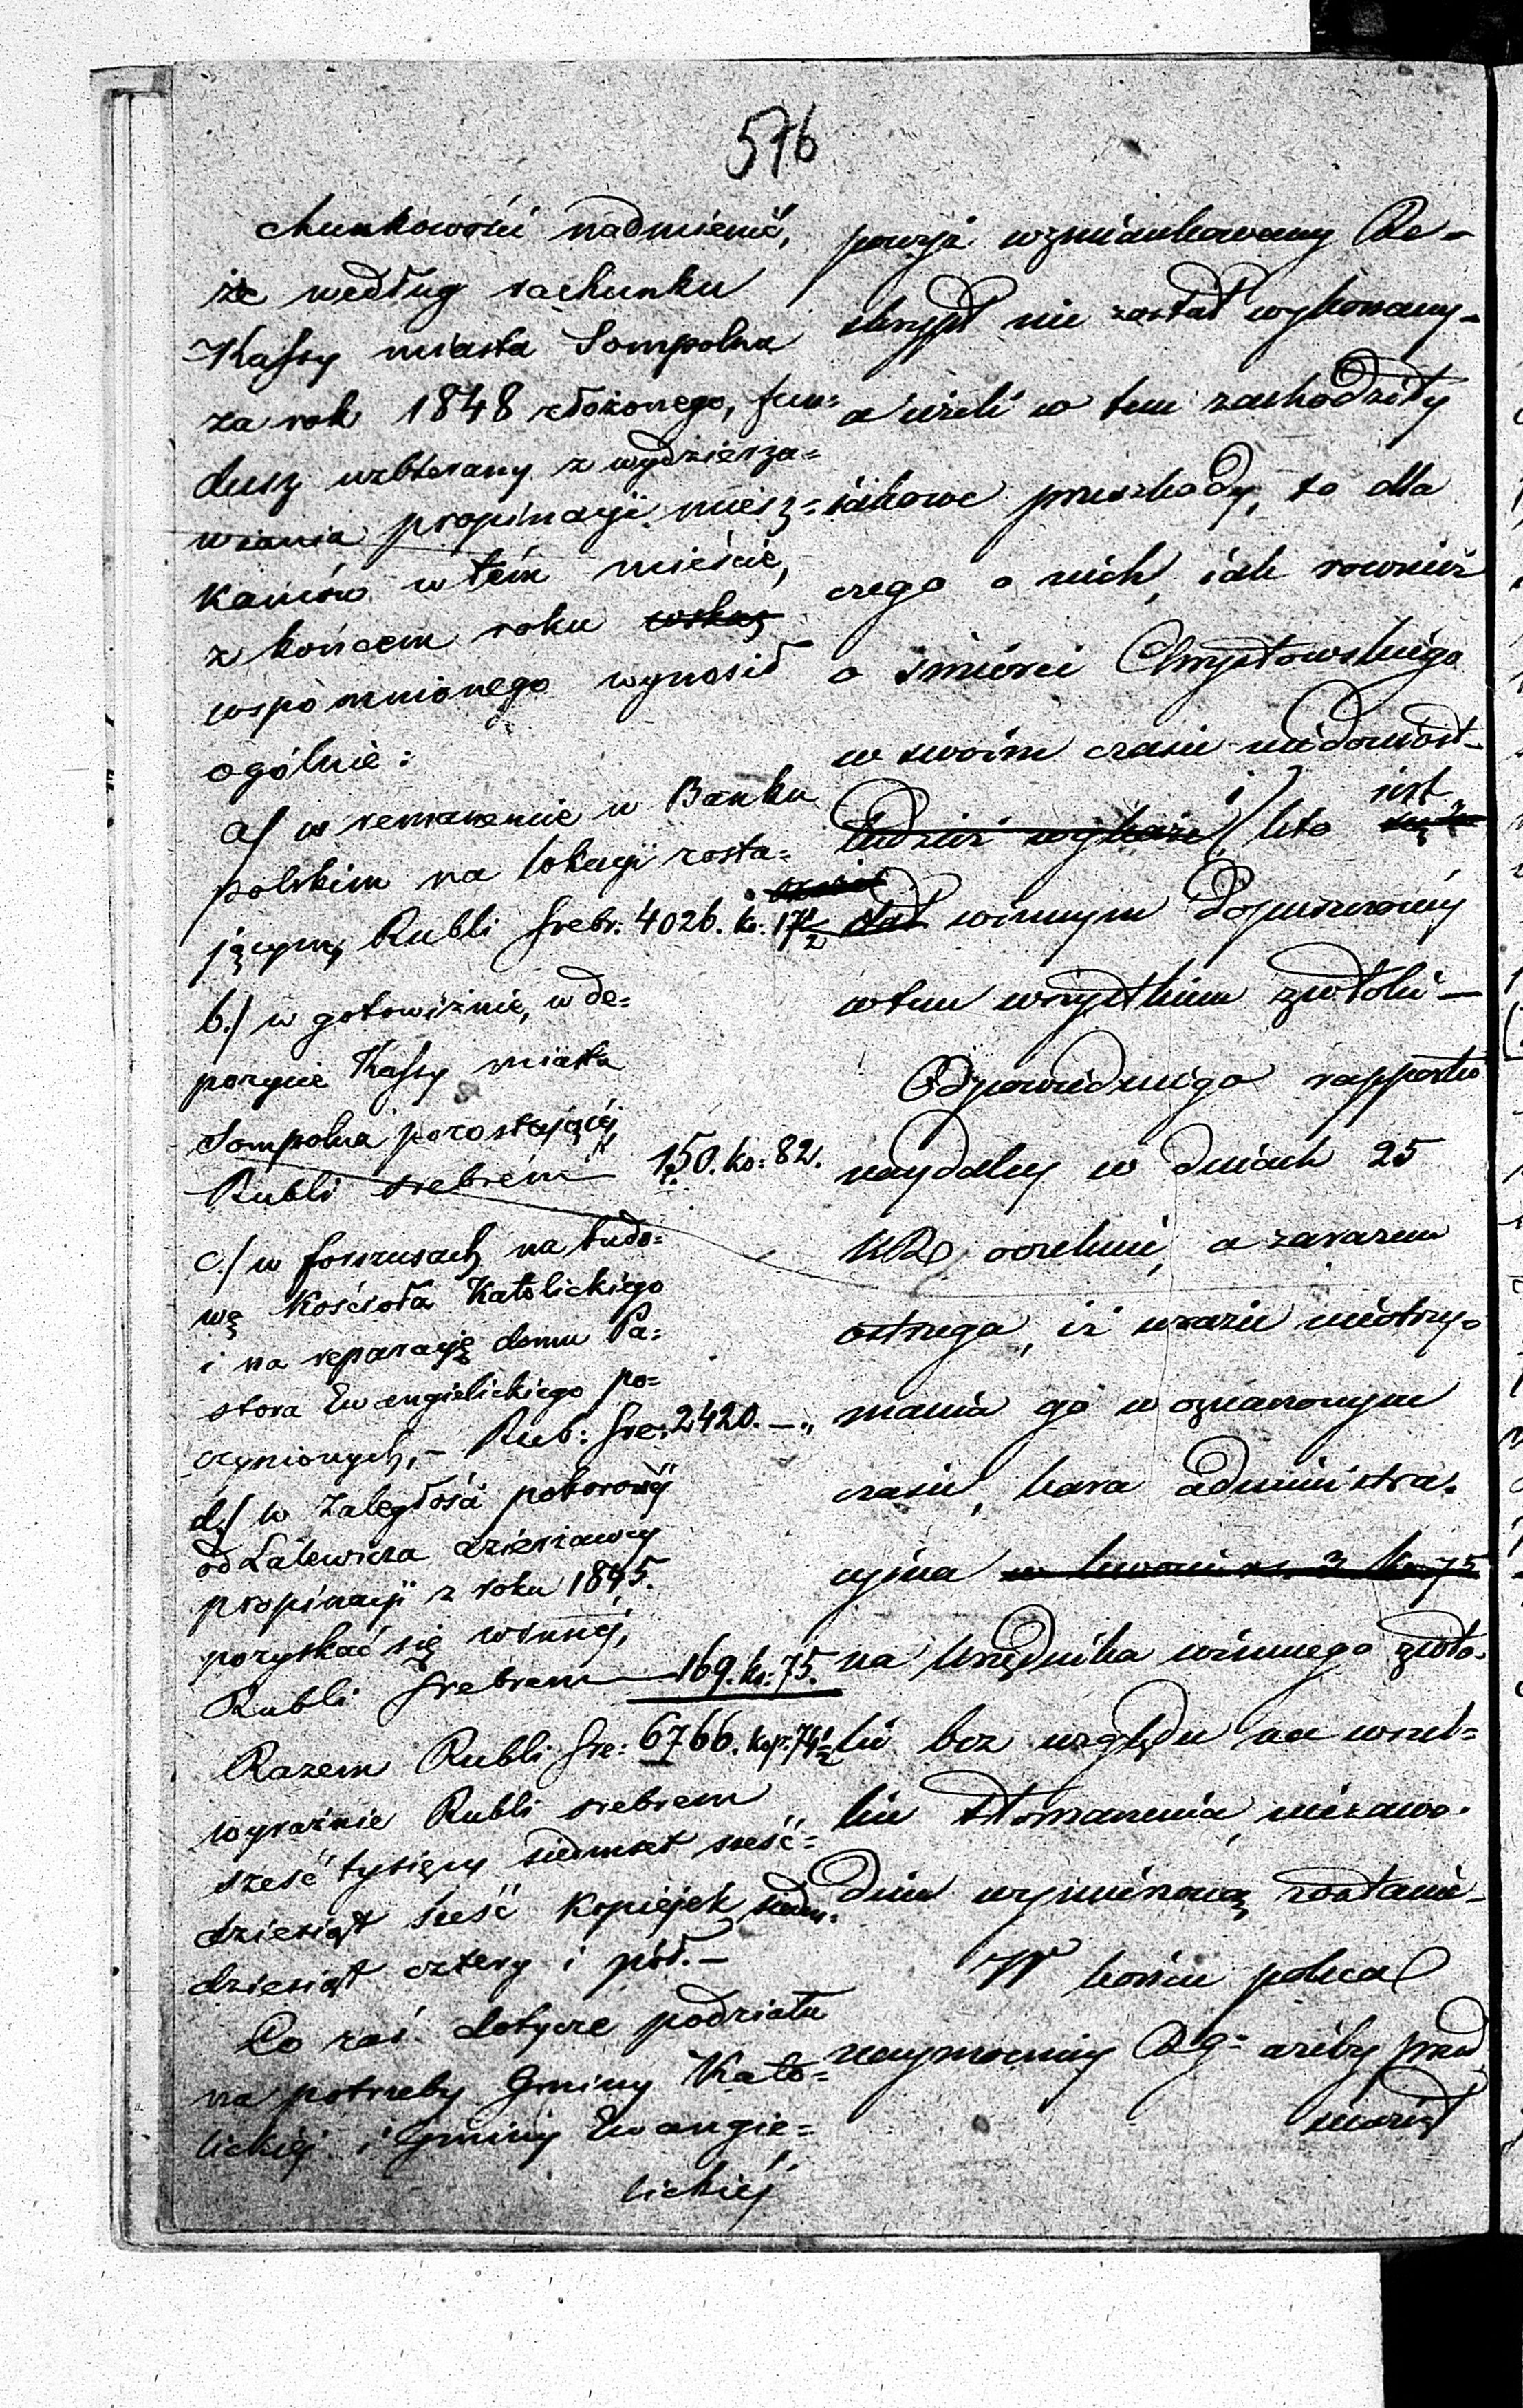 576
chunkowości nadmienić,
że według rachunku
Kassy miasta Sompolna
za rok 1848 złożonego, fun=
dusz uzbierany z wydzierża=
wiania propinacji miesz=
kańców w tém mieście,
z końcem roku wskaz
wspomnionego wynosił
ogólnie:
a/ w remanencie w Banku
polskim na lokacji zosta=
jącym, Rubli Srebr. 4026. k. 17½
b./ w gotowiźnie, w de=
pozycie Kassy miasta
Sompolna pozostającéj
Rubli srebrem 150. ko: 82.
c./ w forszusach na budo=
wę Kościoła Katolickiego
i na reparację domu Pa=
stora Ewangielickiego po=
czynionych, - Rub: Sre: 2420. — „
d./ w Zaległości poborowéj
od Lalewicza dzierżawcy
propinacji z roku 1845.
pozyskać się winnéj,
Rubli Srebrem 169. k: 75.
Razem Rubli Sre: 6766. kop. 74½
wyraźnie Rubli srebrem
sześć tysięcy siedmset sześć=
dziesiąt sześć kopiejek siedm=
dziesiąt cztery i pół. —
Co zaś dotycze podziału
na potrzeby Gminy Kato=
lickiéj i Gminy Ewangie=
lickiéj
powyż wzmiankowany Re-
skrypt nie został wykonany -
a jeżeli w tem zachodziły
iakowe przeszkody, to dla
czego o nich, iak również
o śmierci Chrystowskiego
w swoim czasie niedoniósł -
tudzież wykaże i/ kto jest
winnym dopuszczonéj
w tem wszystkiem zwłoki —
Odpowiedniego rapportu
naydaley w dniach 25
oczekuie, a zarazem
ostrzega, iż w razie nieotrzy=
mania go w oznaczonym
czasie, kara administra=
cyjna w kwocie rs. 3 ko 75
na Urzędnika winnego zwło=
ki bez względu na wszel=
kie tłomaczenia, niezawo=
dnie wymierzoną zostanie -
W końcu poleca
naymocniey ażeby przed